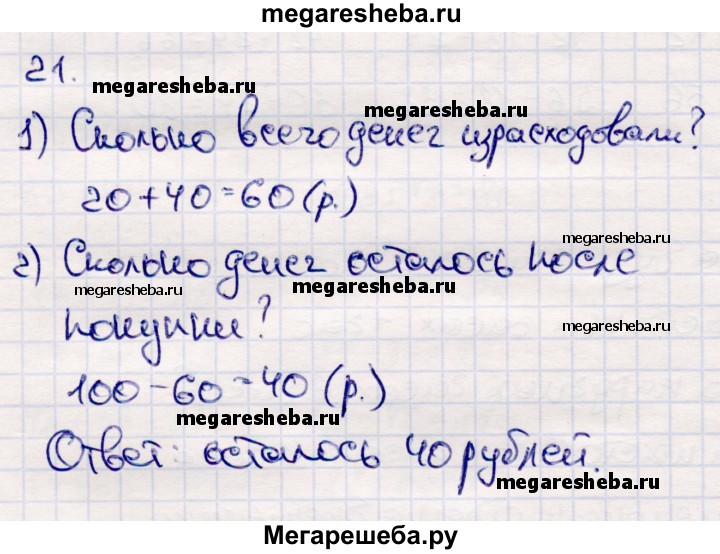 megaresheba.ru
21.
megaresheba.ru
megaresheba.ru
1) Сколько всего денег израсходовали?
20+40=60 (р.)
megaresheba.ru
2) Сколько денег осталось после
megaresheba.ru
megaresheba.ru
покупки?
megaresheba.ru
100-60=40 (р.)
megaresheba.ru
Ответ: осталось 40 рублей.
Мегарешеба.ру